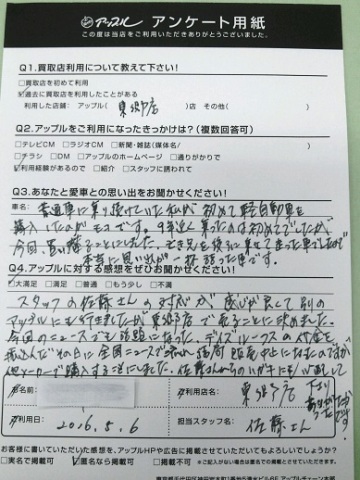 アップル アンケート用紙
この度は当店をご利用いただきありがとうございました。
Q1.買取店利用について教えて下さい！
□買取店を初めて利用
☑過去に買取店を利用したことがある
利用した店舗： アップル（ 東郷店 ）店 その他（ ）
Q2.アップルをご利用になったきっかけは？（複数回答可）
□テレビCM □ラジオCM □新聞・雑誌（媒体名／ ）
□チラシ □DM □アップルのホームページ □通りがかりで
☑利用経験があるので □紹介 □スタッフに誘われて
Q3.あなたと愛車との思い出をお聞かせください！
車名：
普通車に乗り続けていた私が初めて軽自動車を
購入したのがモコです。9年近く乗ったのは初めてでしたが
今回、買い替えることにしました。亡き兄を後ろに乗せて走った車でしたので
本当に思い出が一杯詰った車です。
Q4.アップルに対する感想をぜひお聞かせください！
☑大満足 □満足 □普通 □もう少し □不満
スタッフの佐藤さんの対応が感じが良くて別の
アップルにも行きましたが東郷店で売ることに決めました。
今回のニュースでも話題になった、デイズルークスの代金を
振込んだその日に全国ニュースで 結局 販売中止になったので
他メーカーで購入することにしました。佐藤さんからのハガキにも心配して
下さり
ありがたかった
です。
お名前
ご利用店名
東郷店
ご利用日
2016.5.6
担当スタッフ名
佐藤さん
お客様に書いていただいた感想を、アップルHPや広告に掲載させていただいてもよろしいでしょうか？
□実名で掲載可 ☑匿名なら掲載可 □掲載不可 ※ご記入がない場合は匿名での掲載とさせていただきます。